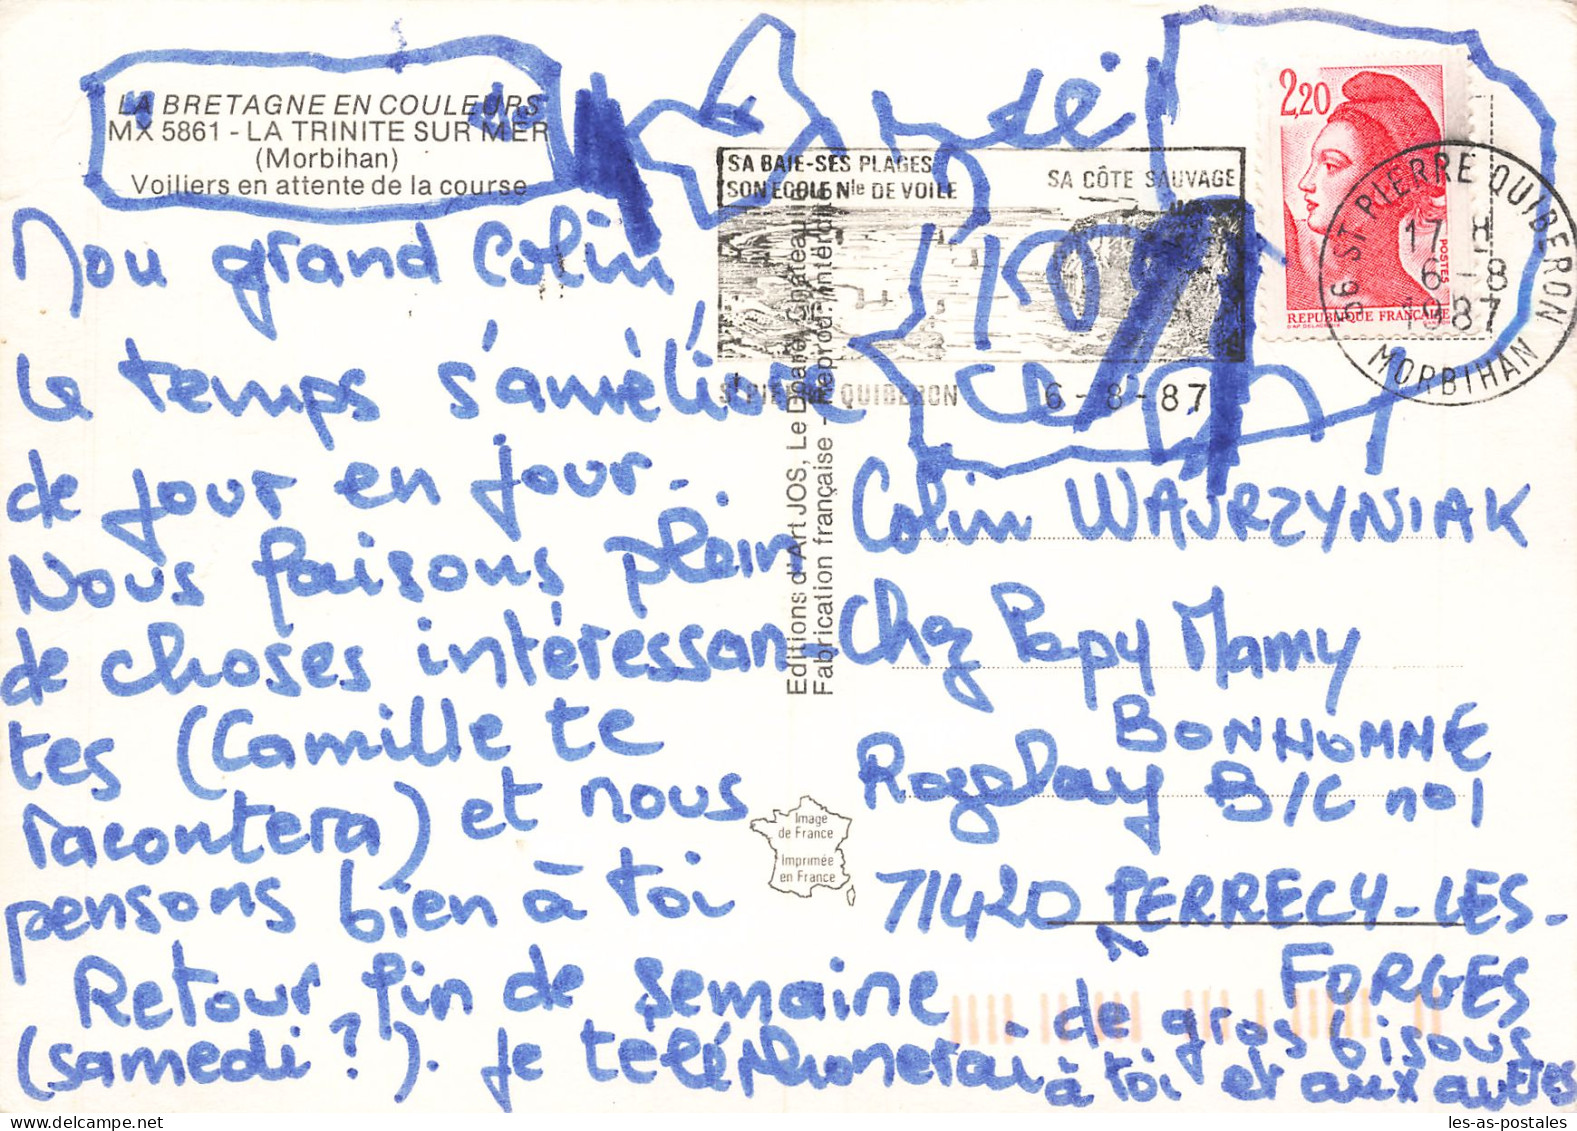 LA BRETAGNE EN COULEURS
MX 5861 - LA TRINITE SUR MER
(Morbihan)
Voiliers en attente de la course
Mon grand Colin,
Le temps s'améliore
de jour en jour...
Nous faisons plein
de choses intéressan
tes (Camille te
racontera) et nous
pensons bien à toi
Retour fin de semaine
(samedi ?). Je téléphonerai
de gros bisous
à toi et aux autres
SA BAIE-SES PLAGES
SON ECOLE Nle DE VOILE
SA CÔTE SAUVAGE
ST PIERRE QUIBERON
6-8-87
2,20
POSTES
REPUBLIQUE FRANÇAISE
56 ST PIERRE QUIBERON
17 H
6-8
1987
MORBIHAN
Editions d'Art JOS, Le Doaré, Châteaulin
Fabrication française - Reprod. interdite
Colin WAWRZYNIAK
Chez Papy Mamy
BONHOMME
Rozelay B/C no 1
71420 PERRECY-LES-
FORGES
Image
de France
Imprimée
en France
les-as-postales